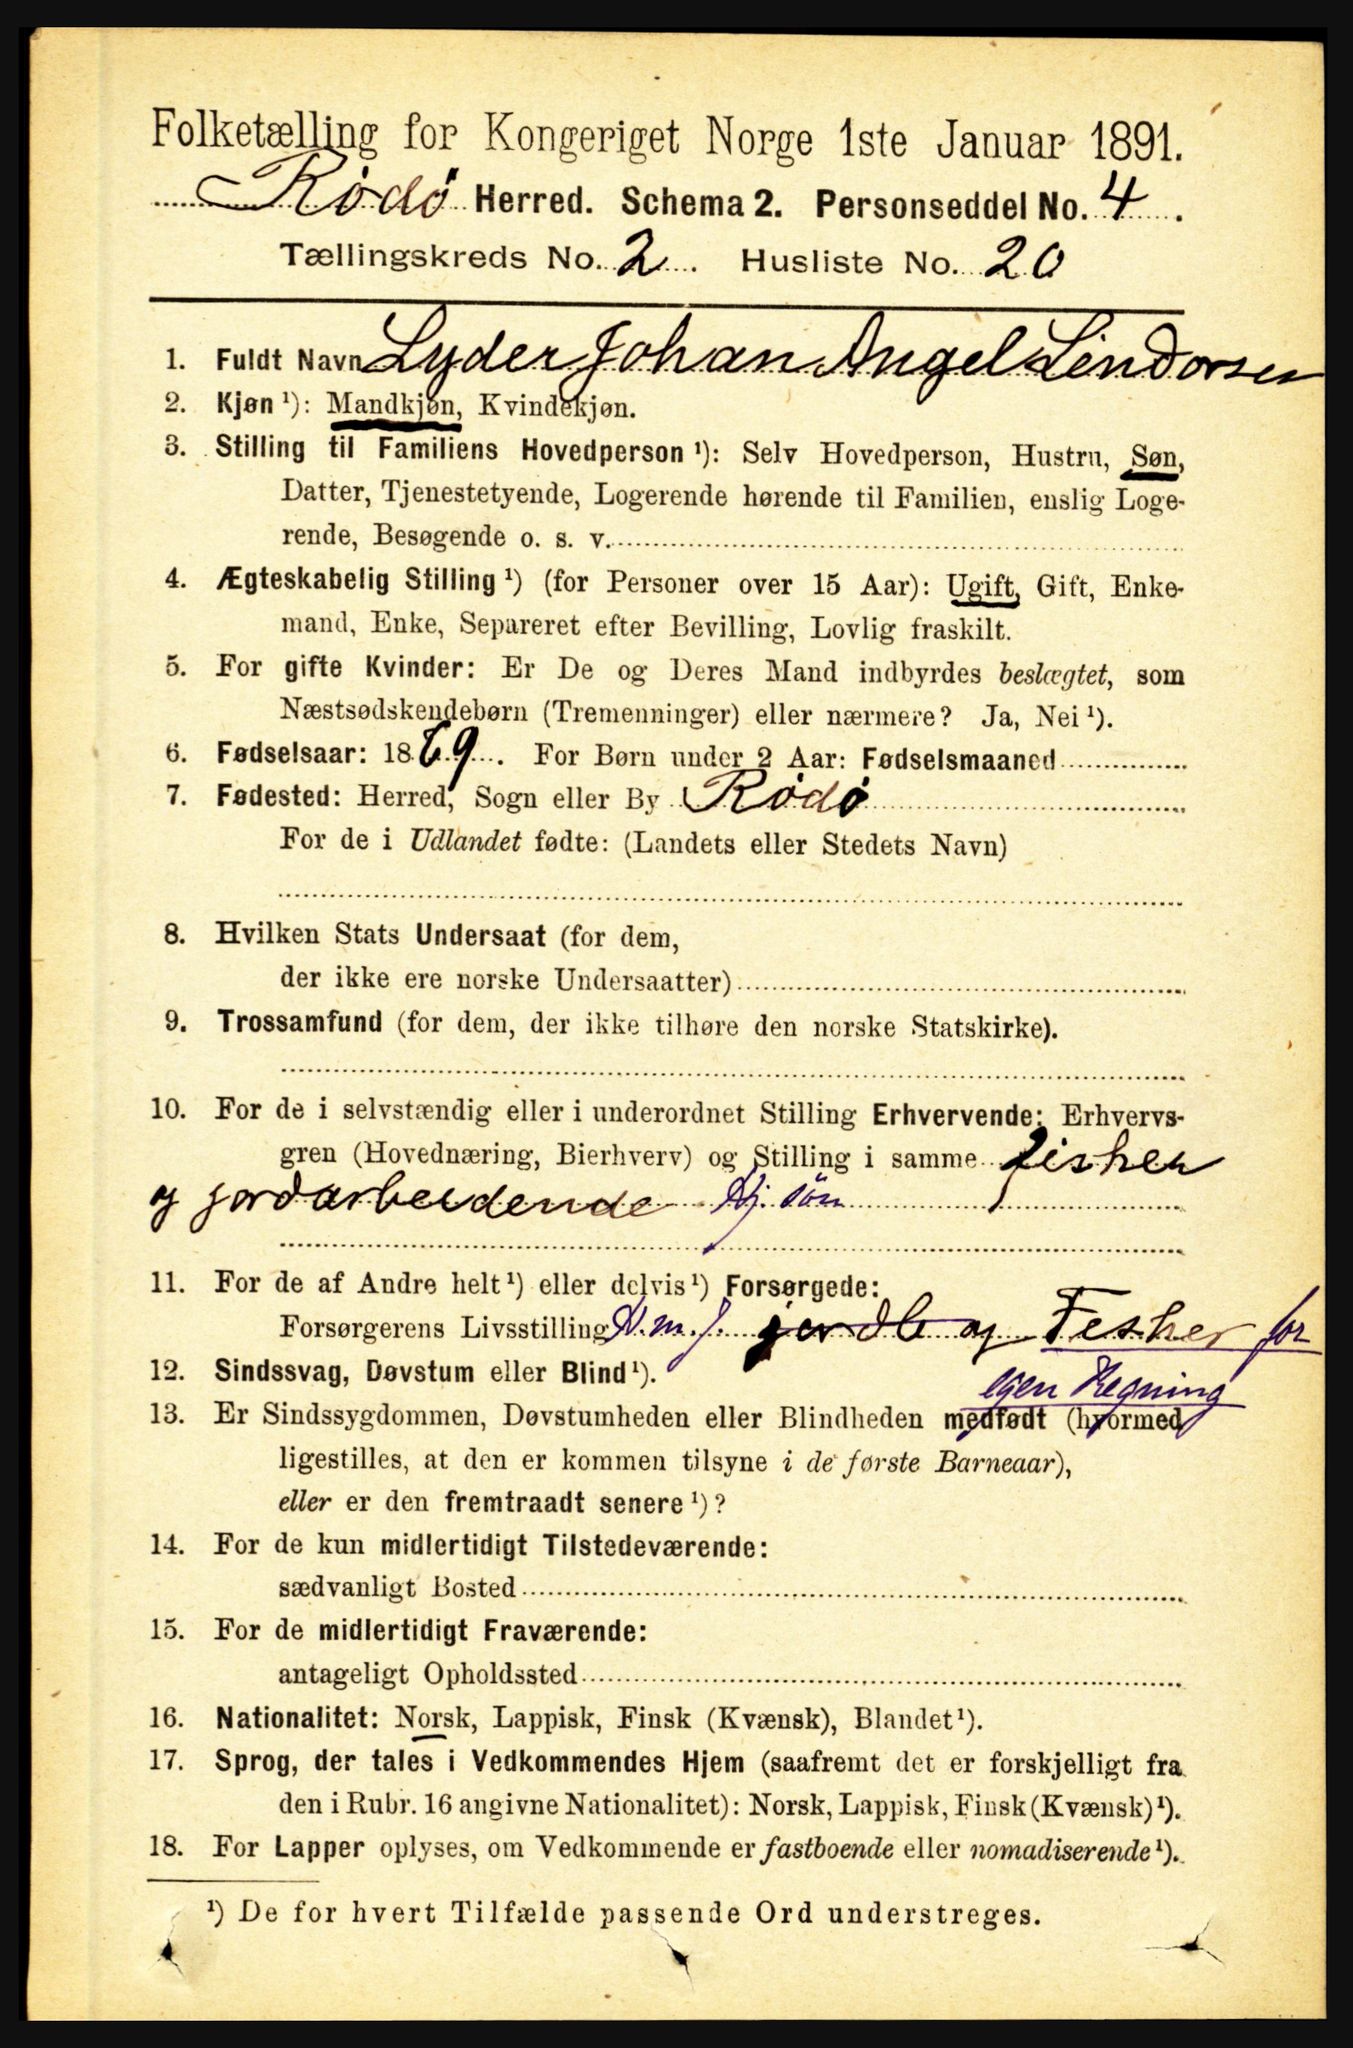 Folketælling for Kongeriget Norge 1ste Januar 1891.
Rödö Herred. Schema 2. Personseddel No. 4.
Tællingskreds No. 2. Husliste No. 20
1. Fuldt Navn Lyder Johan Angel Lindorsen
2. Kjøn ¹): Mandkjøn, Kvindekjøn.
3. Stilling til Familiens Hovedperson ¹): Selv Hovedperson, Hustru, Søn,
Datter, Tjenestetyende, Logerende hørende til Familien, enslig Loge-
rende, Besøgende o. s. v.
4. Ægteskabelig Stilling ¹) (for Personer over 15 Aar): Ugift, Gift, Enke-
mand, Enke, Separeret efter Bevilling, Lovlig fraskilt.
5. For gifte Kvinder: Er De og Deres Mand indbyrdes beslægtet, som
Næstsødskendebørn (Tremenninger) eller nærmere? Ja, Nei ¹).
6. Fødselsaar: 1869. For Børn under 2 Aar: Fødselsmaaned
7. Fødested: Herred, Sogn eller By Rödö
For de i Udlandet fødte: (Landets eller Stedets Navn)
8. Hvilken Stats Undersaat (for dem,
der ikke ere norske Undersaatter)
9. Trossamfund (for dem, der ikke tilhøre den norske Statskirke).
10. For de i selvstændig eller i underordnet Stilling Erhvervende: Erhvervs-
gren (Hovednæring, Bierhverv) og Stilling i samme fisker
og jordarbeidende Hj. søn
11. For de af Andre helt ¹) eller delvis ¹) Forsørgede:
Forsørgerens Livsstilling og Fesker for
egen Regning
12. Sindssvag, Døvstum eller Blind ¹).
13. Er Sindssygdommen, Døvstumheden eller Blindheden medfødt (hvormed
ligestilles, at den er kommen tilsyne i de første Barneaar),
eller er den fremtraadt senere ¹)?
14. For de kun midlertidigt Tilstedeværende:
sædvanligt Bosted
15. For de midlertidigt Fraværende:
antageligt Opholdssted
16. Nationalitet: Norsk, Lappisk, Finsk (Kvænsk), Blandet ¹).
17. Sprog, der tales i Vedkommendes Hjem (saafremt det er forskjelligt fra
den i Rubr. 16 angivne Nationalitet): Norsk, Lappisk, Finsk (Kvænsk) ¹).
18. For Lapper oplyses, om Vedkommende er fastboende eller nomadiserende ¹).
¹) De for hvert Tilfælde passende Ord understreges.